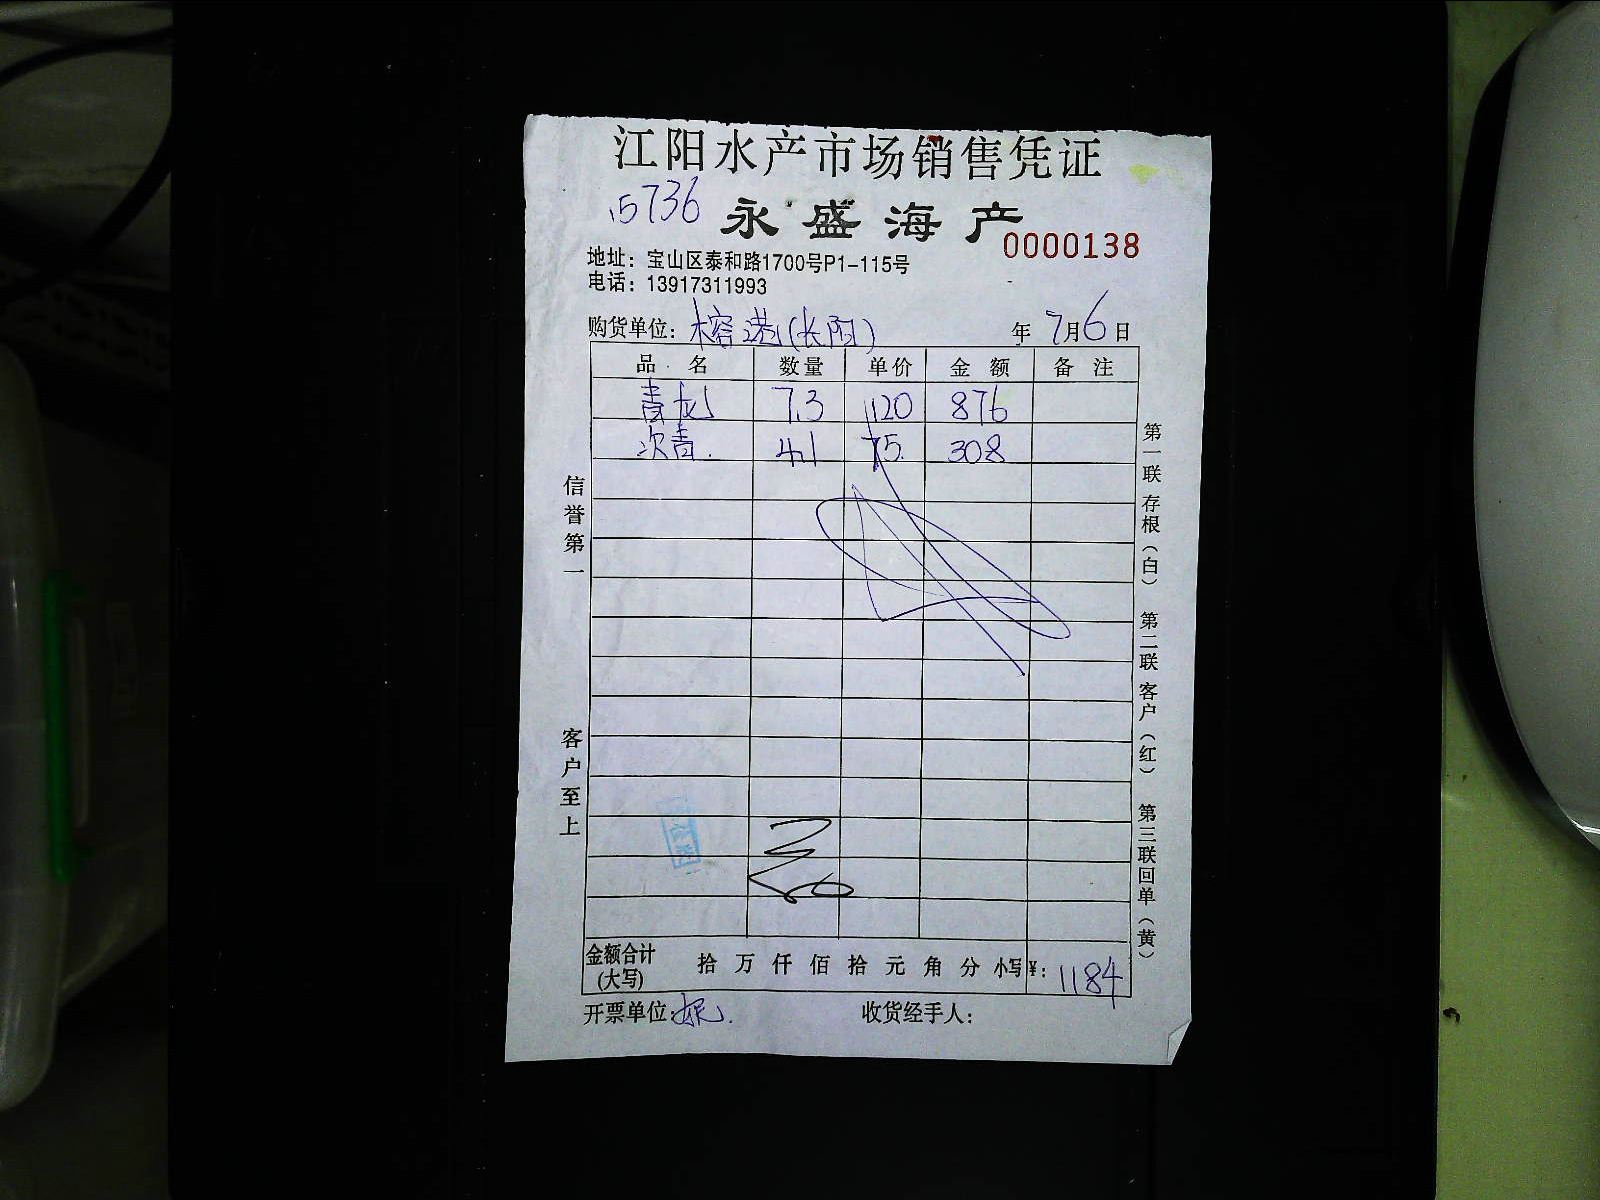 江阳水产市场销售凭证
15736
永盛海产
0000138
地址：宝山区泰和路1700号P1-115号
电话：13917311993
购货单位：榕港(长阳) 年 7月6日
品 名 数量 单价 金 额 备 注
青龙 7.3 120 876
次青. 4.1 75. 308
信誉第一
客户至上
第一联 存根（白） 第二联 客户（红） 第三联回单（黄）
金额合计(大写) 拾 万 仟 佰 拾 元 角 分 小写¥：1184
开票单位: 收货经手人：